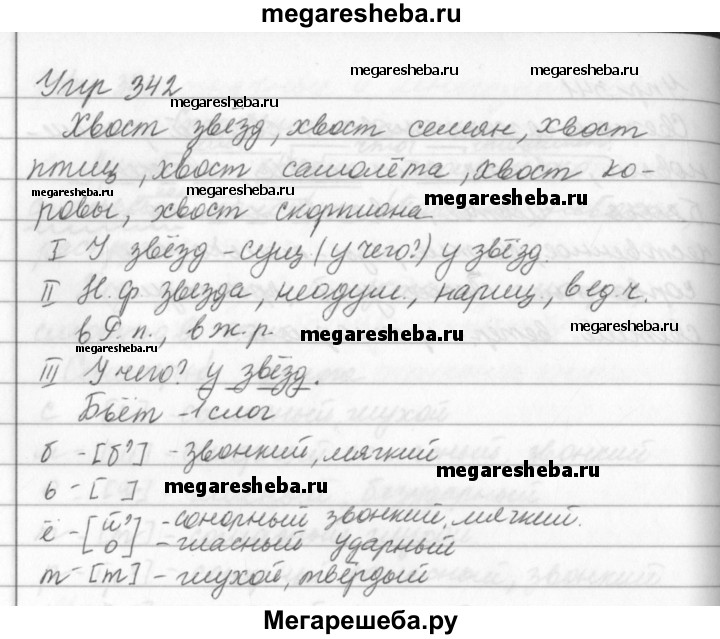 megaresheba.ru
Упр 342
megaresheba.ru
megaresheba.ru
megaresheba.ru
Хвост звезд, хвост семян, хвост
птиц, хвост самолёта, хвост ко-
megaresheba.ru
megaresheba.ru
megaresheba.ru
ровы, хвост скорпиона
I У звёзд - сущ (у чего?) у звёзд.
II Н.ф звезда, неодуш., нариц, в ед.ч.
в Р.п., в ж.р.
megaresheba.ru
megaresheba.ru
megaresheba.ru
III У чего? у звёзд.
Бьёт - 1 слог
б - [б'] - звонкий, мягкий
megaresheba.ru
ь - [ ]
megaresheba.ru
ё - [й' - сонорный звонкий, мягкий.
о] - гласный ударный
т - [т] - глухой, твёрдый
Мегарешеба.ру